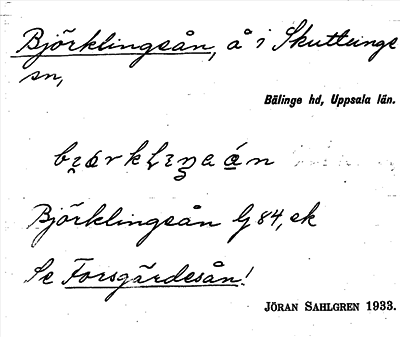 Björklingsån, å i Skuttunge
sn,
Bälinge hd, Uppsala län.
Björklingsån Lj 84, ek
Se Forsgärdesån!
JÖRAN SAHLGREN 1933.